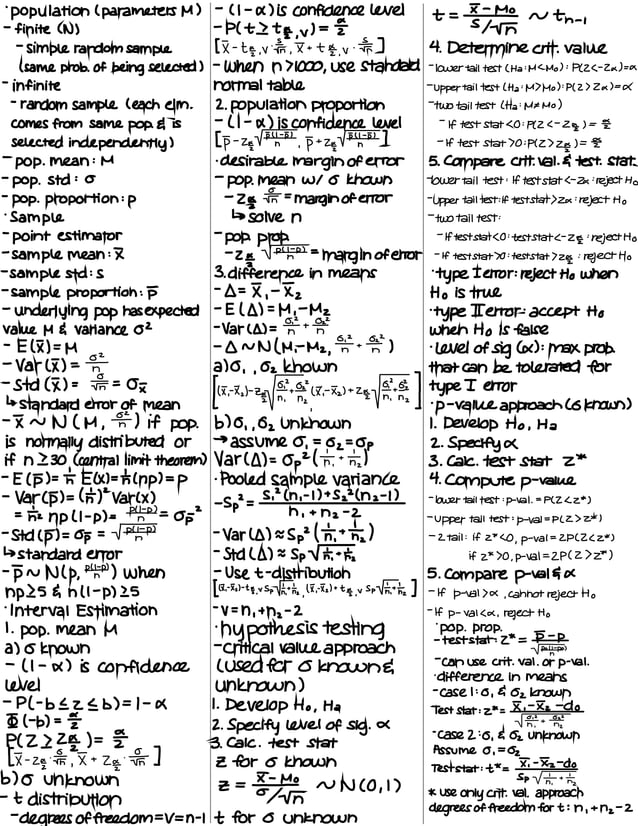 ·population (parameters M)
- finite (N)
- simple random sample
(same prob. of being selected)
- infinite
- random sample (each elm.
comes from same pop & is
selected independently)
- pop. mean: M
- pop. std: σ
- pop. proportion: p
· Sample
- point estimator
- sample mean: x̄
- sample std: s
- sample proportion: p̄
- underlying pop has expected
value M & variance σ²
- E(x̄) = M
- Var(x̄) = σ²/n
- Std(x̄) = σ/√n = σx̄
↳ standard error of mean
- x̄ ~ N(M, σ²/n) if pop.
is normally distributed or
if n ≥ 30 (central limit theorem)
- E(p̄) = 1/n E(x) = 1/n(np) = p
- Var(p̄) = (1/n)² Var(x)
= 1/n² np(1-p) = p(1-p)/n = σp̄²
- Std(p̄) = σp̄ = √p(1-p)/n
↳ standard error
- p̄ ~ N(p, p(1-p)/n) when
np ≥ 5 & n(1-p) ≥ 5
· Interval Estimation
1. pop. mean M
a) σ known
- (1-α) is confidence
level
- P(-b ≤ z ≤ b) = 1-α
Φ(-b) = α/2
P(Z ≥ Zα/2) = α/2
[x̄ - Zα/2 · σ/√n, x̄ + Zα/2 · σ/√n]
b) σ unknown
- t distribution
- degrees of freedom = v = n-1
- (1-α) is confidence level
- P(t ≥ tα/2,v) = α/2
[x̄ - tα/2,v · s/√n, x̄ + tα/2,v · s/√n]
- when n > 1000, use standard
normal table
2. population proportion
- (1-α) is confidence level
[p̄ - Zα/2 √p̄(1-p̄)/n, p̄ + Zα/2 √p̄(1-p̄)/n]
· desirable margin of error
- pop. mean w/ σ known
- Zα/2 σ/√n = margin of error
↳ solve n
- pop prop
- Zα/2 √p(1-p)/n = margin of error
3. difference in means
- Δ = x̄₁ - x̄₂
- E(Δ) = M₁ - M₂
- Var(Δ) = σ₁²/n + σ₂²/n
- Δ ~ N(M₁-M₂, σ₁²/n + σ₂²/n)
a) σ₁, σ₂ known
[(x̄₁-x̄₂) - Zα/2 √σ₁²/n₁ + σ₂²/n₂, (x̄₁-x̄₂) + Zα/2 √σ₁²/n₁ + σ₂²/n₂]
b) σ₁, σ₂ unknown
→ assume σ₁ = σ₂ = σp
Var(Δ) = σp² (1/n₁ + 1/n₂)
· Pooled sample variance
- Sp² = s₁²(n₁-1) + s₂²(n₂-1) / n₁ + n₂ - 2
- Var(Δ) ≈ Sp² (1/n₁ + 1/n₂)
- Std(Δ) ≈ Sp √1/n₁ + 1/n₂
- Use t-distribution
[(x̄₁-x̄₂) - tα/2,v Sp √1/n₁ + 1/n₂, (x̄₁-x̄₂) + tα/2,v Sp √1/n₁ + 1/n₂]
- v = n₁ + n₂ - 2
· hypothesis testing
- critical value approach
(used for σ known &
unknown)
1. Develop H₀, Ha
2. Specify level of sig. α
3. Calc. test stat
z for σ known
z = x̄ - M₀ / σ/√n ~ N(0,1)
t for σ unknown
t = x̄ - M₀ / s/√n ~ tn-1
4. Determine crit. value
- lower tail test (Ha: M<M₀): P(Z<-Zα)=α
- Upper tail test (Ha: M>M₀): P(Z>Zα)=α
- two tail test (Ha: M≠M₀)
- If test stat <0: P(Z<-Zα/2) = α/2
- If test stat >0: P(Z>Zα/2) = α/2
5. Compare crit. val. & test. stat.
- lower tail test: If test stat <-Zα: reject H₀
- Upper tail test: if test stat > Zα: reject H₀
- two tail test:
- If test stat <0: test stat <-Zα/2: reject H₀
- If test stat >0: test stat > Zα/2: reject H₀
· type I error: reject H₀ when
H₀ is true
· type II error: accept H₀
when H₀ is false
· level of sig (α): max prob.
that can be tolerated for
type I error
· p-value approach (σ known)
1. Develop H₀, Ha
2. Specify α
3. Calc. test stat Z*
4. Compute p-value
- lower tail test: p-val. = P(Z<z*)
- Upper tail test: p-val = P(Z>z*)
- 2 tail: if z*<0, p-val = 2P(Z<z*)
if z*>0, p-val = 2P(Z>z*)
5. Compare p-val & α
- If p-val >α, cannot reject H₀
- If p-val <α, reject H₀
· pop. prop.
- test stat: Z* = p̄ - p / √p(1-p)/n
- can use crit. val. or p-val.
· difference in means
- case 1: σ₁ & σ₂ known
Test stat: z* = x̄₁ - x̄₂ - d₀ / √σ₁²/n₁ + σ₂²/n₂
- case 2: σ₁ & σ₂ unknown
Assume σ₁ = σ₂
Test stat: t* = x̄₁ - x̄₂ - d₀ / Sp √1/n₁ + 1/n₂
* use only crit. val. approach
degrees of freedom for t: n₁ + n₂ - 2